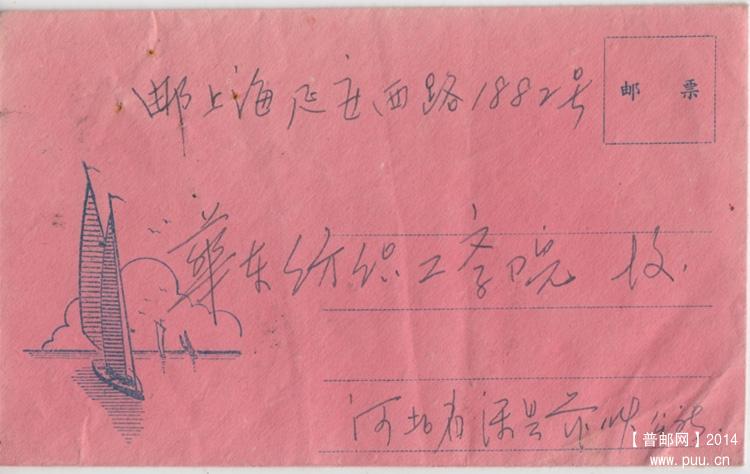 邮上海延安西路1882号
邮 票
华东纺织工学院 收.
河北省深县
【普邮网】2014
www.puu.cn